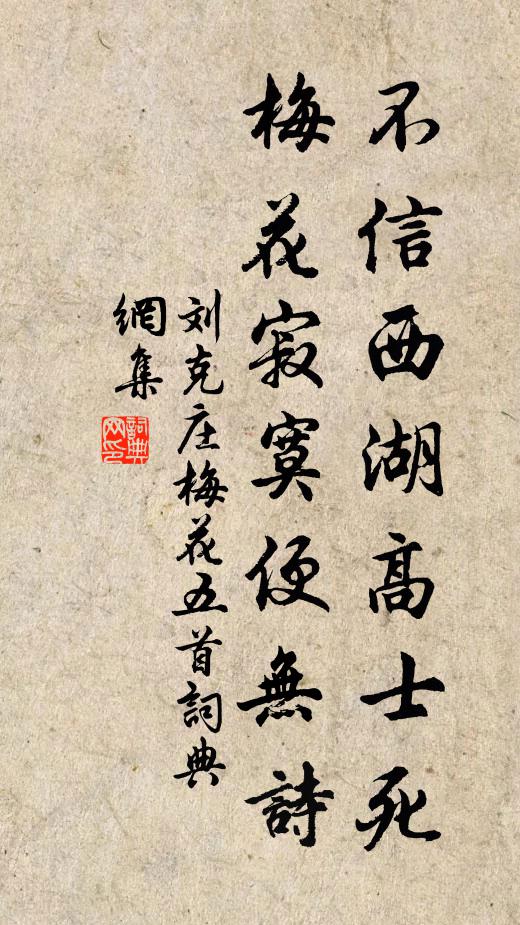 不信西湖高士死
梅花寂寞便無詩
刘克庄梅花五首詞典
網集
詞典網印